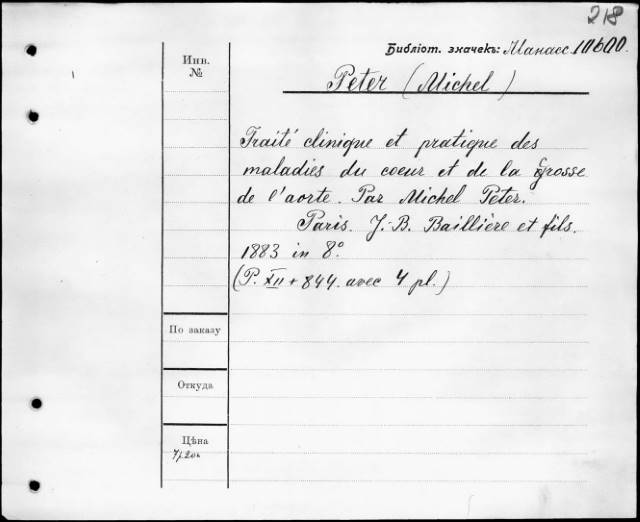 218
Библіот. значекъ: Манасс 10600.
Инв.
№
Peter (Michel)
Traité clinique et pratique des
maladies du coeur et de la Crosse
de l'aorte. Par Michel Peter.
Paris. J.-B. Baillière et fils.
1883 in 8°.
(P. XII + 844. avec 4 pl.)
По заказу
Откуда
Цѣна